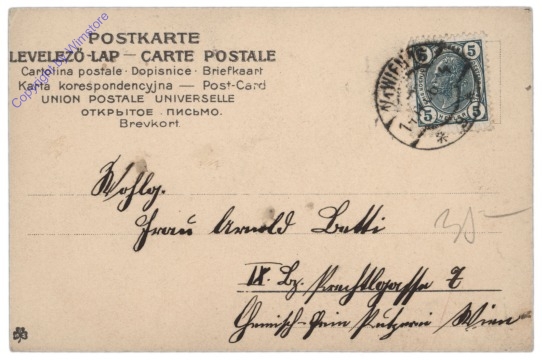 POSTKARTE
LEVELEZŐ-LAP — CARTE POSTALE
Cartolina postale · Dopisnice · Briefkaart
Karta korespondencyjna — Post-Card
UNION POSTALE UNIVERSELLE
ОТКРЫТОЕ ПИСЬМО.
Brevkort.
Copyright by Wirnstore
WIEN
5 5
5 5
Wohlg.
Frau Arnold Batti
35-
IX. Bz. Prechtlgasse 7
Chemisch-Fein Putzerei Wien